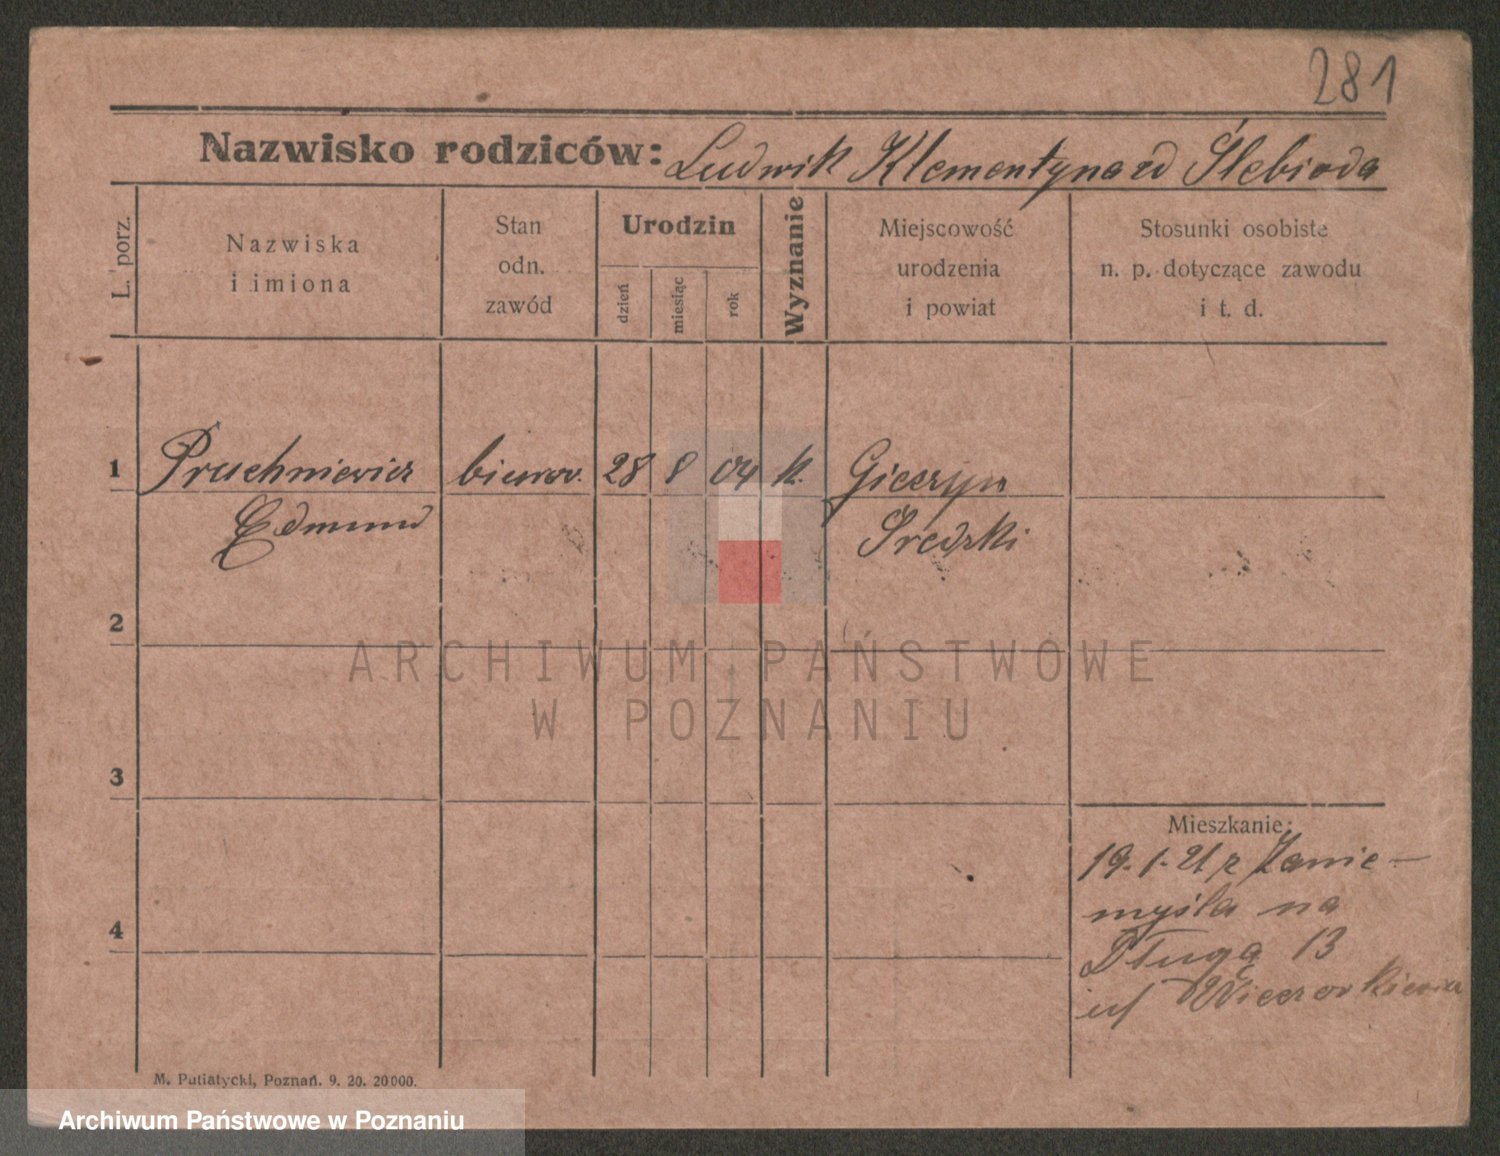 281
Nazwisko rodziców: Ludwik Klementyna zd Ślebioda
L. porz.
Nazwiska
i imiona
Stan
odn.
zawód
Urodzin
dzień
miesiąc
rok
Wyznanie
Miejscowość
urodzenia
i powiat
Stosunki osobiste
n. p. dotyczące zawodu
i t. d.
1 Pruchniewicz biurow. 28 8 04 k. Gieczyn
Edmund Średzki
2
ARCHIWUM PAŃSTWOWE
W POZNANIU
3
Mieszkanie:
19.1.21 z Zanie-
myśla na
4
Długą 13
u/ Wieczorkiewicz
M. Putiatycki, Poznań. 9. 20. 20000.
Archiwum Państwowe w Poznaniu